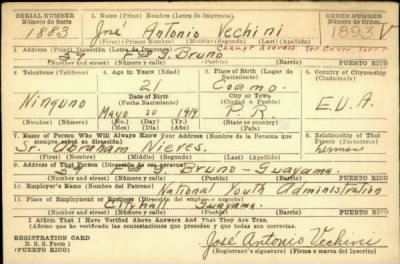 SERIAL NUMBER
Número de Serie
1883
1. Name (Print) Nombre (Letra de Imprenta)
José Antonio Vechini
(First) (Primero) (Middle) (Segundo) (Last) (Apellido)
ORDER NUMBER
Número de Orden
1893 V
2. Address (Print) Dirección (Letra de Imprenta)
Bruno
Change Address
(Number) (Número) (Number and street) (Número y calle)
PUERTO RICO
4. Telephone (Teléfono)
Ninguno
(Number) (Número)
5. Age in Years (Edad)
21
Date of Birth
(Fecha Nacimiento)
Mayo 20 1919
(Mo.) (Day) (Yr.)
(Mes) (Día) (Año)
5. Place of Birth (Lugar de Nacimiento)
Coamo.
City or Town
(Ciudad o Pueblo)
P R
(Country) (País)
6. Country of Citizenship
(Ciudadanía)
E.U.A.
7. Name of Person Who Will Always Know Your Address (Nombre de la Persona que siempre sabrá su dirección)
Sr. Abraham Nieves.
(First) (Primero) (Middle) (Segundo) (Last) (Apellido)
8. Relationship of That Person
9. Address of That Person
Bruno - Guayama.
(Number) (Número) (Number and street) (Número y calle)
PUERTO RICO
10. Employer's Name (Nombre del Patrono)
National Youth Administration
11. Place of Employment or Business (Dirección del empleo o negocio)
City hall Guayama.
(Number) (Número) (Number and street) (Número y calle)
PUERTO RICO
I Affirm That I Have Verified Above Answers And That They Are True.
(Afirmo que he verificado las contestaciones que preceden y que todas son correctas).
REGISTRATION CARD
D. S. S. Form 1
José Antonio Vechini
(Registrant's signature) (Firma o marca del Inscrito)